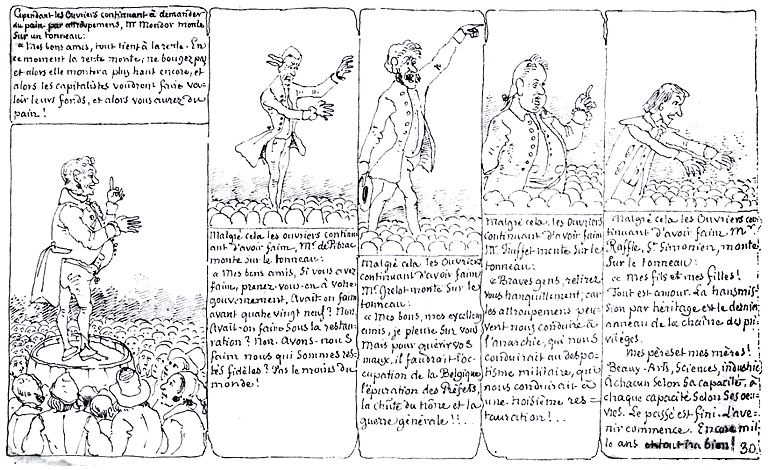 Cependant les Ouvriers continuant à demander
du pain par attroupemens, Mr Mondor monte
sur un tonneau:
« Mes bons amis, tout tient à la rente. En
ce moment la rente monte; ne bougez pas
et alors elle montera plus haut encore, et
alors les capitalistes voudront faire va-
loir leurs fonds, et alors vous aurez du
pain!
Malgré cela les ouvriers continu-
ant d'avoir faim, Mr de Pibrac
monte sur le tonneau:
« Mes bons amis, si vous avez
faim, prenez-vous-en à votre
gouvernement. Avait-on faim
avant quatre vingt neuf? Non.
Avait-on faim sous la restau-
ration? Non. Avons-nous
faim nous qui sommes res-
tés fidèles? Pas le moins du
monde!
Malgré cela les Ouvriers
continuant d'avoir faim
Mr Grelot monte sur le
tonneau:
« Mes bons, mes excellens
amis, je pleure sur vous
Mais pour guérir vos
maux, il faudrait l'oc-
cupation de la Belgique
l'épuration des Préfets,
la chûte du trône et la
guerre générale!!...
Malgré cela les Ouvriers
continuant d'avoir faim
Mr. monte sur le
tonneau:
« Braves gens, retirez
vous tranquillement; car
les attroupemens peu-
vent nous conduire à
l'anarchie, qui nous
conduirait au despo-
tisme militaire, qui
nous conduirait à
une troisième res-
tauration!..
Malgré cela les Ouvriers con-
tinuant d'avoir faim Mr
Raffle, St Simonien, monte
sur le tonneau:
« Mes fils et mes filles!
Tout est amour. La transmis-
sion par héritage est le dernier
anneau de la chaîne des pri-
vilèges.
Mes pères et mes mères!
Beaux-Arts, Sciences, industrie
A chacun selon sa capacité, à
chaque capacité selon ses oeu-
vres. Le passé est fini. L'ave-
nir commence. Encore mil-
le ans et tout ira bien!
30.